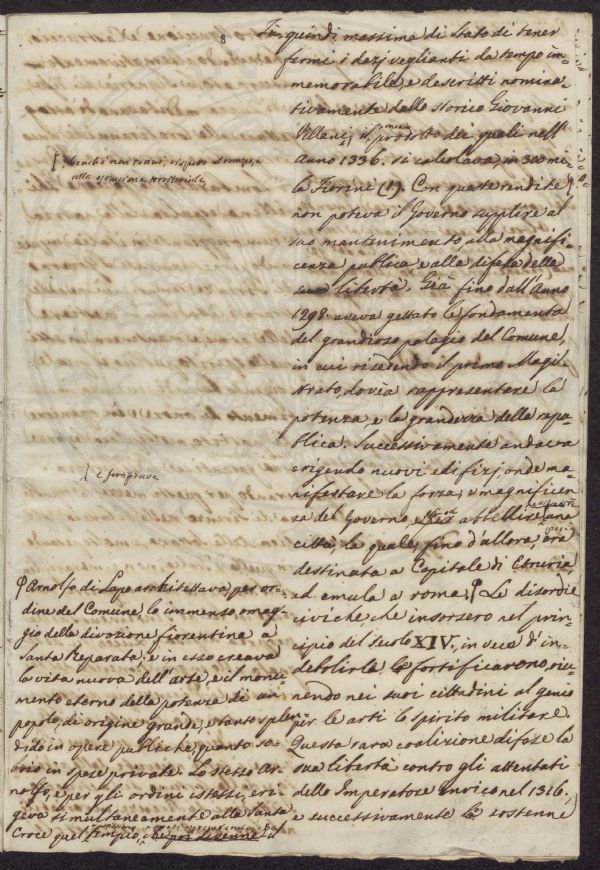 8
Fu quindi massima di Stato di tener
fermi i dazj veglianti da tempo im-
memorabile, e descritti nomina-
tivamente dallo storico Giovanni
Villani, il prodotto dei quali nell'
Anno 1336. si calcolava in 300 mi-
la Fiorini (1). Con queste rendite
non poteva il Governo supplire al
suo mantenimento, alla magnifi-
cenza publica, e alla difesa della
sua libertà. Già fino dall'Anno
1298. aveva gettato le fondamenta
del grandioso palagio del Comune,
in cui risedendo il primo Magi-
strato, dovea rappresentare la
potenza e la grandezza della repu-
blica. Successivamente andava
erigendo nuovi edifizj, onde ma-
nifestare la forza, e magnificen-
za del Governo, abbellire una
città, la quale, fino d'allora, era
destinata a Capitale di Etruria,
ed emula a roma. Le disordie
civiche che insorsero nel prin-
cipio del secolo XIV., in vece d'in-
debolirla, la fortificarono, riu-
nendo nei suoi cittadini al genio
per le arti lo spirito militare.
Questa rara coalizione difese la
sua libertà contro gli attentati
dello Imperatore enrico nel 1316,
e successivamente la sostenne
benchè non tenui, rispetto al tempo, e
alla estensione territoriale
e fortificare
Arnolfo di Lapo architettava per or-
dine del Comune lo immenso omag-
gio della divozione fiorentina a
Santa Reparata; e in esso creava
la vita nuova dell'arte, e il monu-
mento eterno della potenza di un
popolo, di origine grande, e tanto splen-
dido in opere publiche, quanto so-
brio in spese private. Lo stesso Ar-
nolfo, e per gli ordini istessi, eri-
geva simultaneamente alla Santa
Croce quel tempio, che poi divenne il